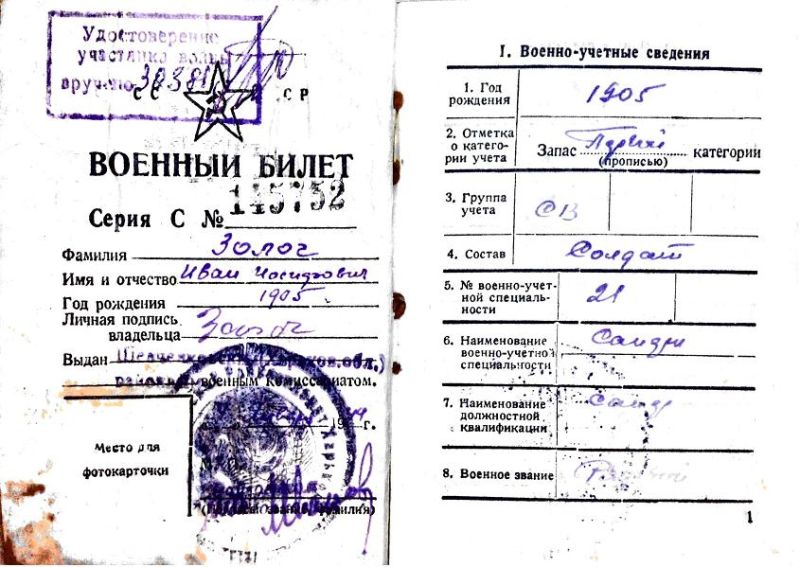 Удостоверение
участника войны
вручено
СС СР
ВОЕННЫЙ БИЛЕТ
Серия С № 145752
Фамилия Золоч
Имя и отчество Иван Иосифович
Год рождения 1905
Личная подпись
владельца Золоч
Выдан Шевченковским (Харьков.обл.)
районным военным комиссариатом.
г.
Место для
фотокарточки
I. Военно-учетные сведения
1. Год
рождения 1905
2. Отметка
о катего-
рии учета Запас категории
(прописью)
3. Группа
учета СВ
4. Состав Солдат
5. № военно-учет-
ной специаль-
ности 21
6. Наименование
военно-учетной
специальности
7. Наименование
должностной
квалификации
8. Военное звание
1